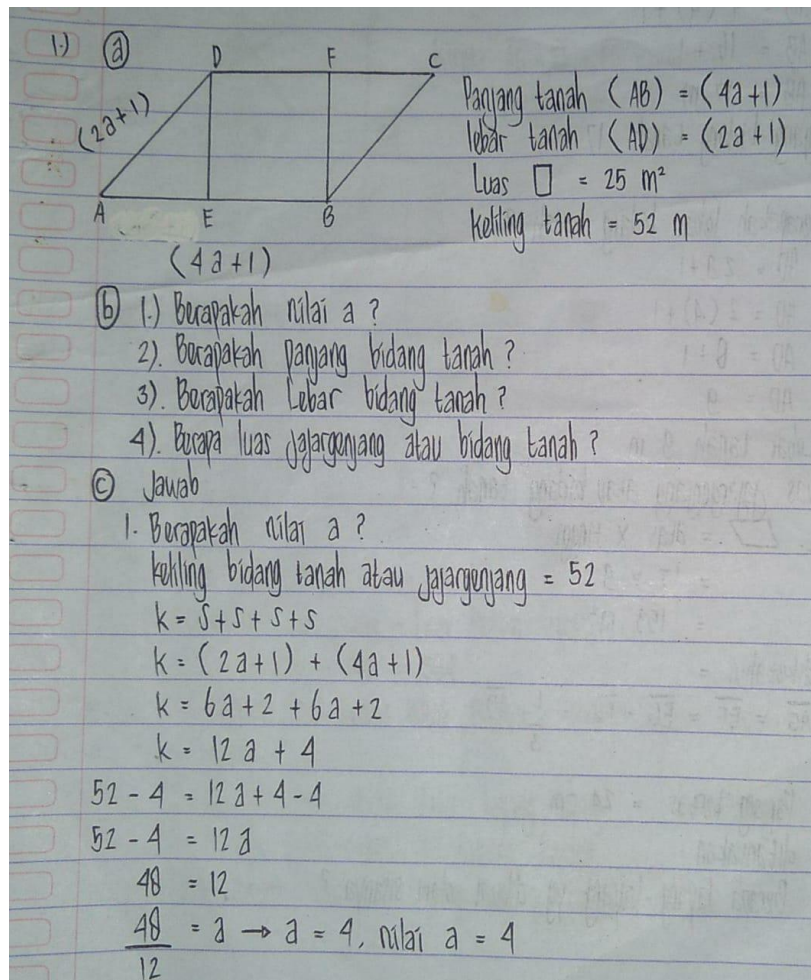 1.) (a)
D F C
(2a+1)
A E B
(4a+1)
Panjang tanah (AB) = (4a+1)
lebar tanah (AD) = (2a+1)
Luas □ = 25 m²
keliling tanah = 52 m
(b) 1.) Berapakah nilai a ?
2). Berapakah panjang bidang tanah ?
3). Berapakah Lebar bidang tanah ?
4). Berapa luas jajargenjang atau bidang tanah ?
(c) Jawab
1. Berapakah nilai a ?
keliling bidang tanah atau jajargenjang = 52
k = s + s + s + s
k = (2a+1) + (4a+1)
k = 6a + 2 + 6a + 2
k = 12a + 4
52 - 4 = 12a + 4 - 4
52 - 4 = 12a
48 = 12
48/12 = a → a = 4, nilai a = 4